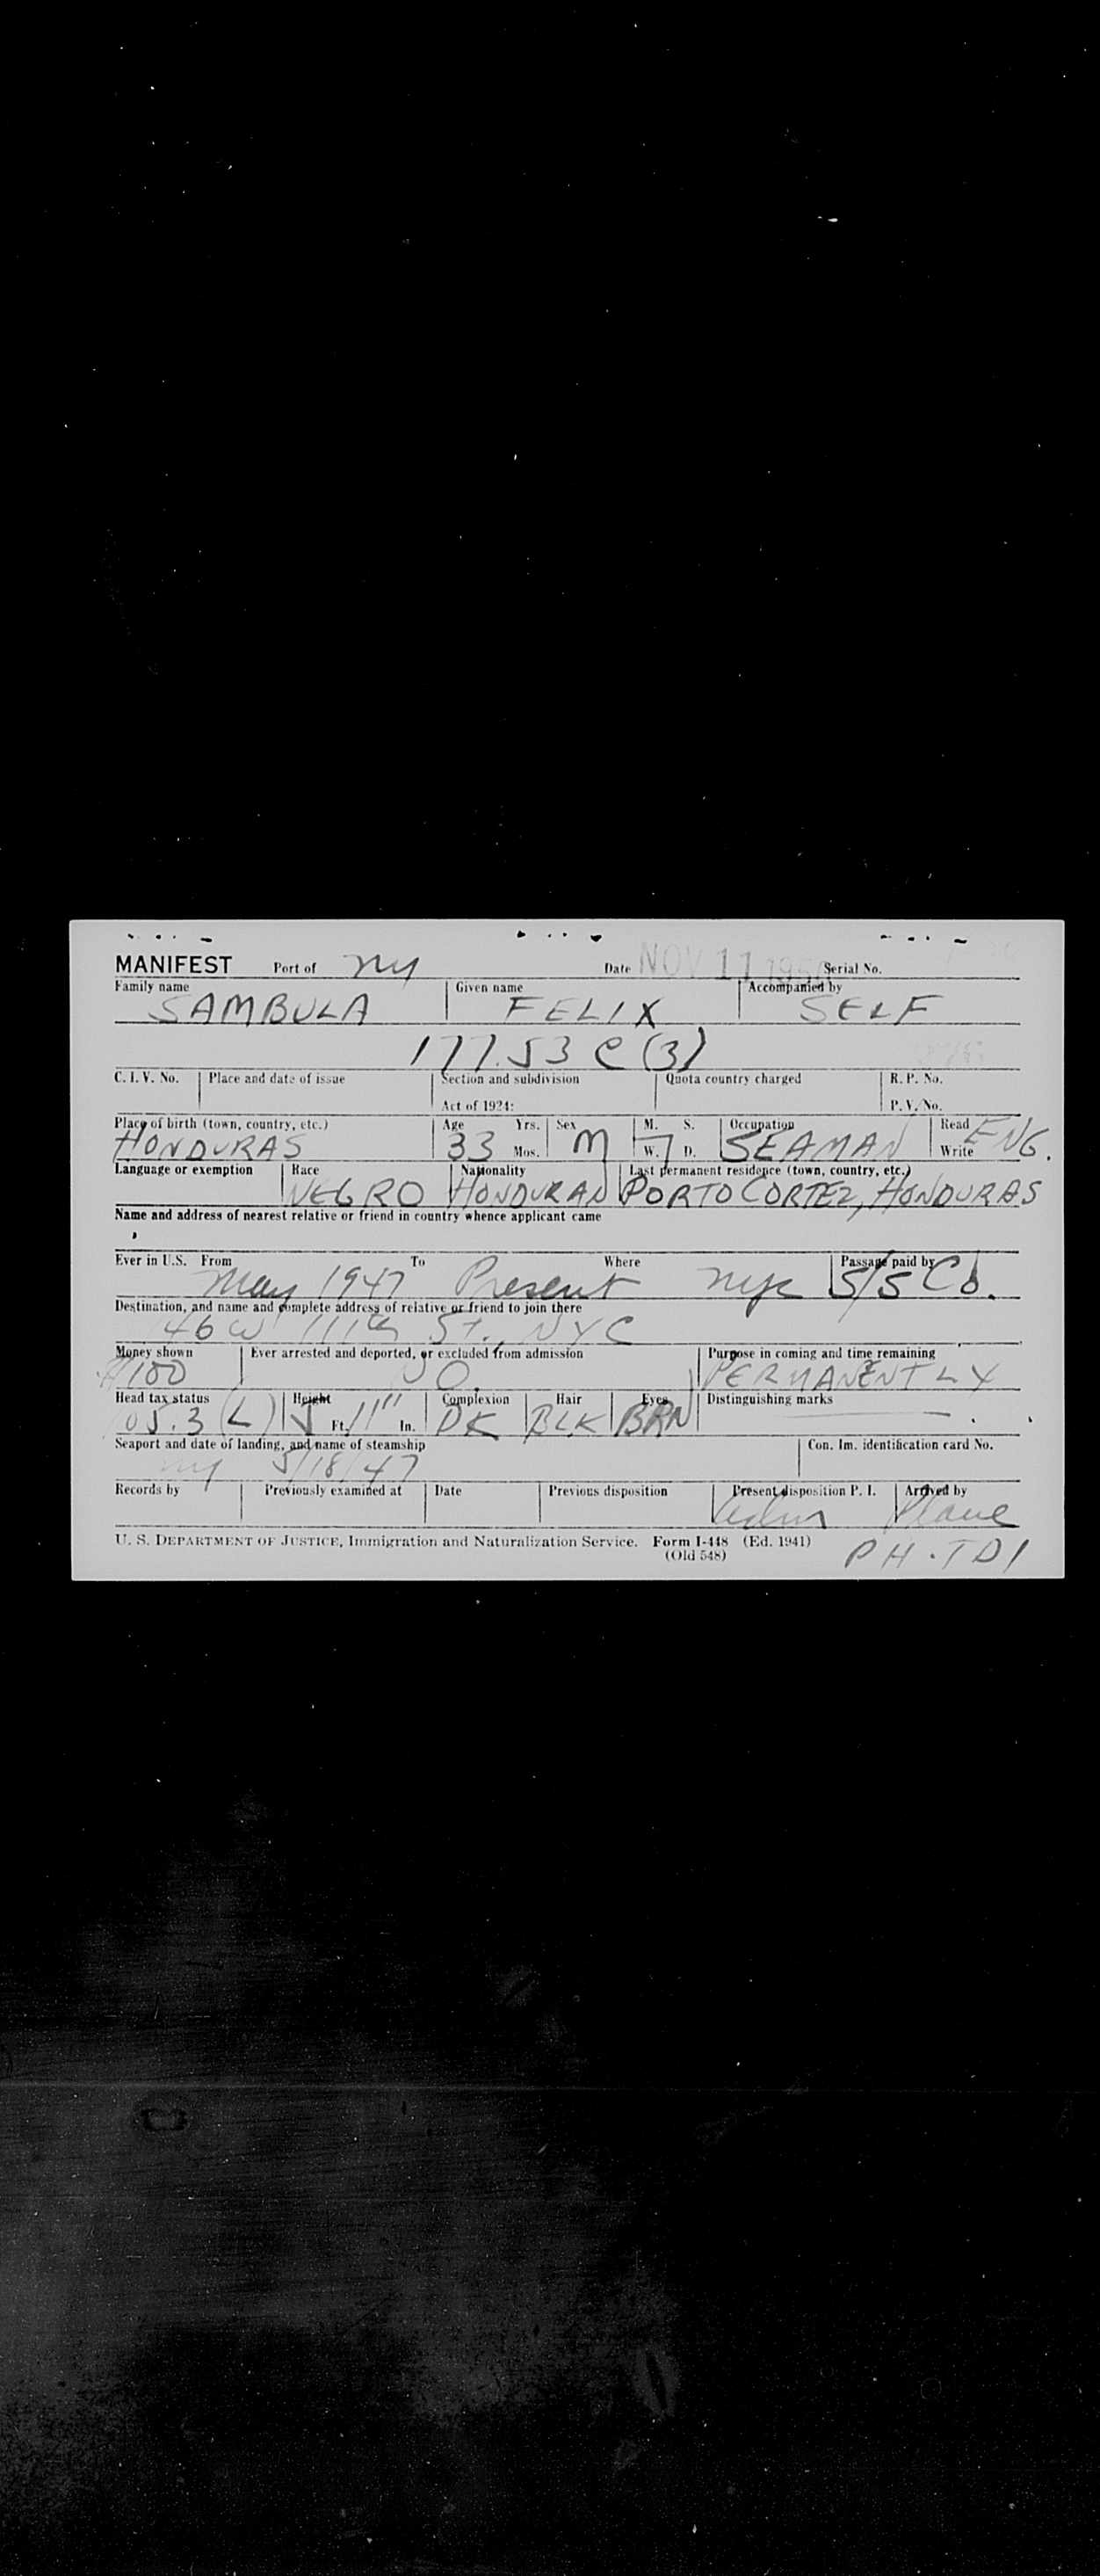 MANIFEST Port of ny Date NOV 11 195 Serial No.
Family name Given name Accompanied by
SAMBULA FELIX SELF
177.53 C (3)
C. I. V. No. Place and date of issue Section and subdivision Quota country charged R. P. No.
Act of 1924: P. V. No.
Place of birth (town, country, etc.) Age Yrs. Sex M. S. Occupation Read
HONDURAS 33 Mos. M W. D. SEAMAN Write ENG.
Language or exemption Race Nationality Last permanent residence (town, country, etc.)
NEGRO HONDURAN PORTO CORTEZ, HONDURAS
Name and address of nearest relative or friend in country whence applicant came
Ever in U.S. From To Where Passage paid by
May 1947 Present nyc S/S Co.
Destination, and name and complete address of relative or friend to join there
46 W 111th St., NYC
Money shown Ever arrested and deported, or excluded from admission Purpose in coming and time remaining
100 NO PERMANENTLY
Head tax status Height Complexion Hair Eyes Distinguishing marks
105.3 (L) 5 Ft. 11" In. DK BLK BRN
Seaport and date of landing, and name of steamship Con. Im. identification card No.
ny 5/18/47
Records by Previously examined at Date Previous disposition Present disposition P. I. Arrived by
Plane
U. S. DEPARTMENT OF JUSTICE, Immigration and Naturalization Service. Form I-448 (Ed. 1941)
(Old 548) PH.TDI